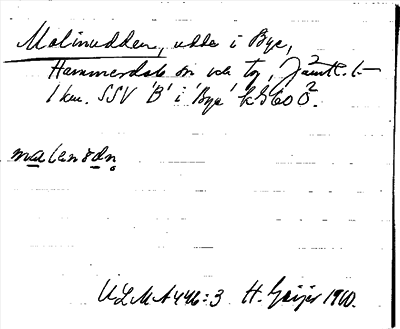 Malinudden, udde i Bye,
Hammerdals sn och tg, Jämtl. l.
1 km. SSV 'B' i 'Bye' k 560 Ö.
malenødn
ULMA 446:3 H. Geijer 1910.